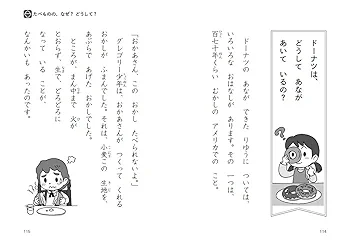 たべものの、なぜ？ どうして？
ドーナツは、
どうして あなが
あいて いるの？
ドーナツの あなが できた りゆうに ついては、
いろいろな おはなしが あります。その 一つは、
百七十年くらい むかしの アメリカでの こと。
114
「おかあさん、この おかし たべられないよ。」
グレゴリー少年は、おかあさんが つくって くれる
おかしが ふまんでした。それは、小麦この 生地を、
あぶらで あげた おかしでした。
ところが、まん中まで 火が
とおらず、生で、どろどろに
なって いる ことが、
なんかいも あったのです。
115